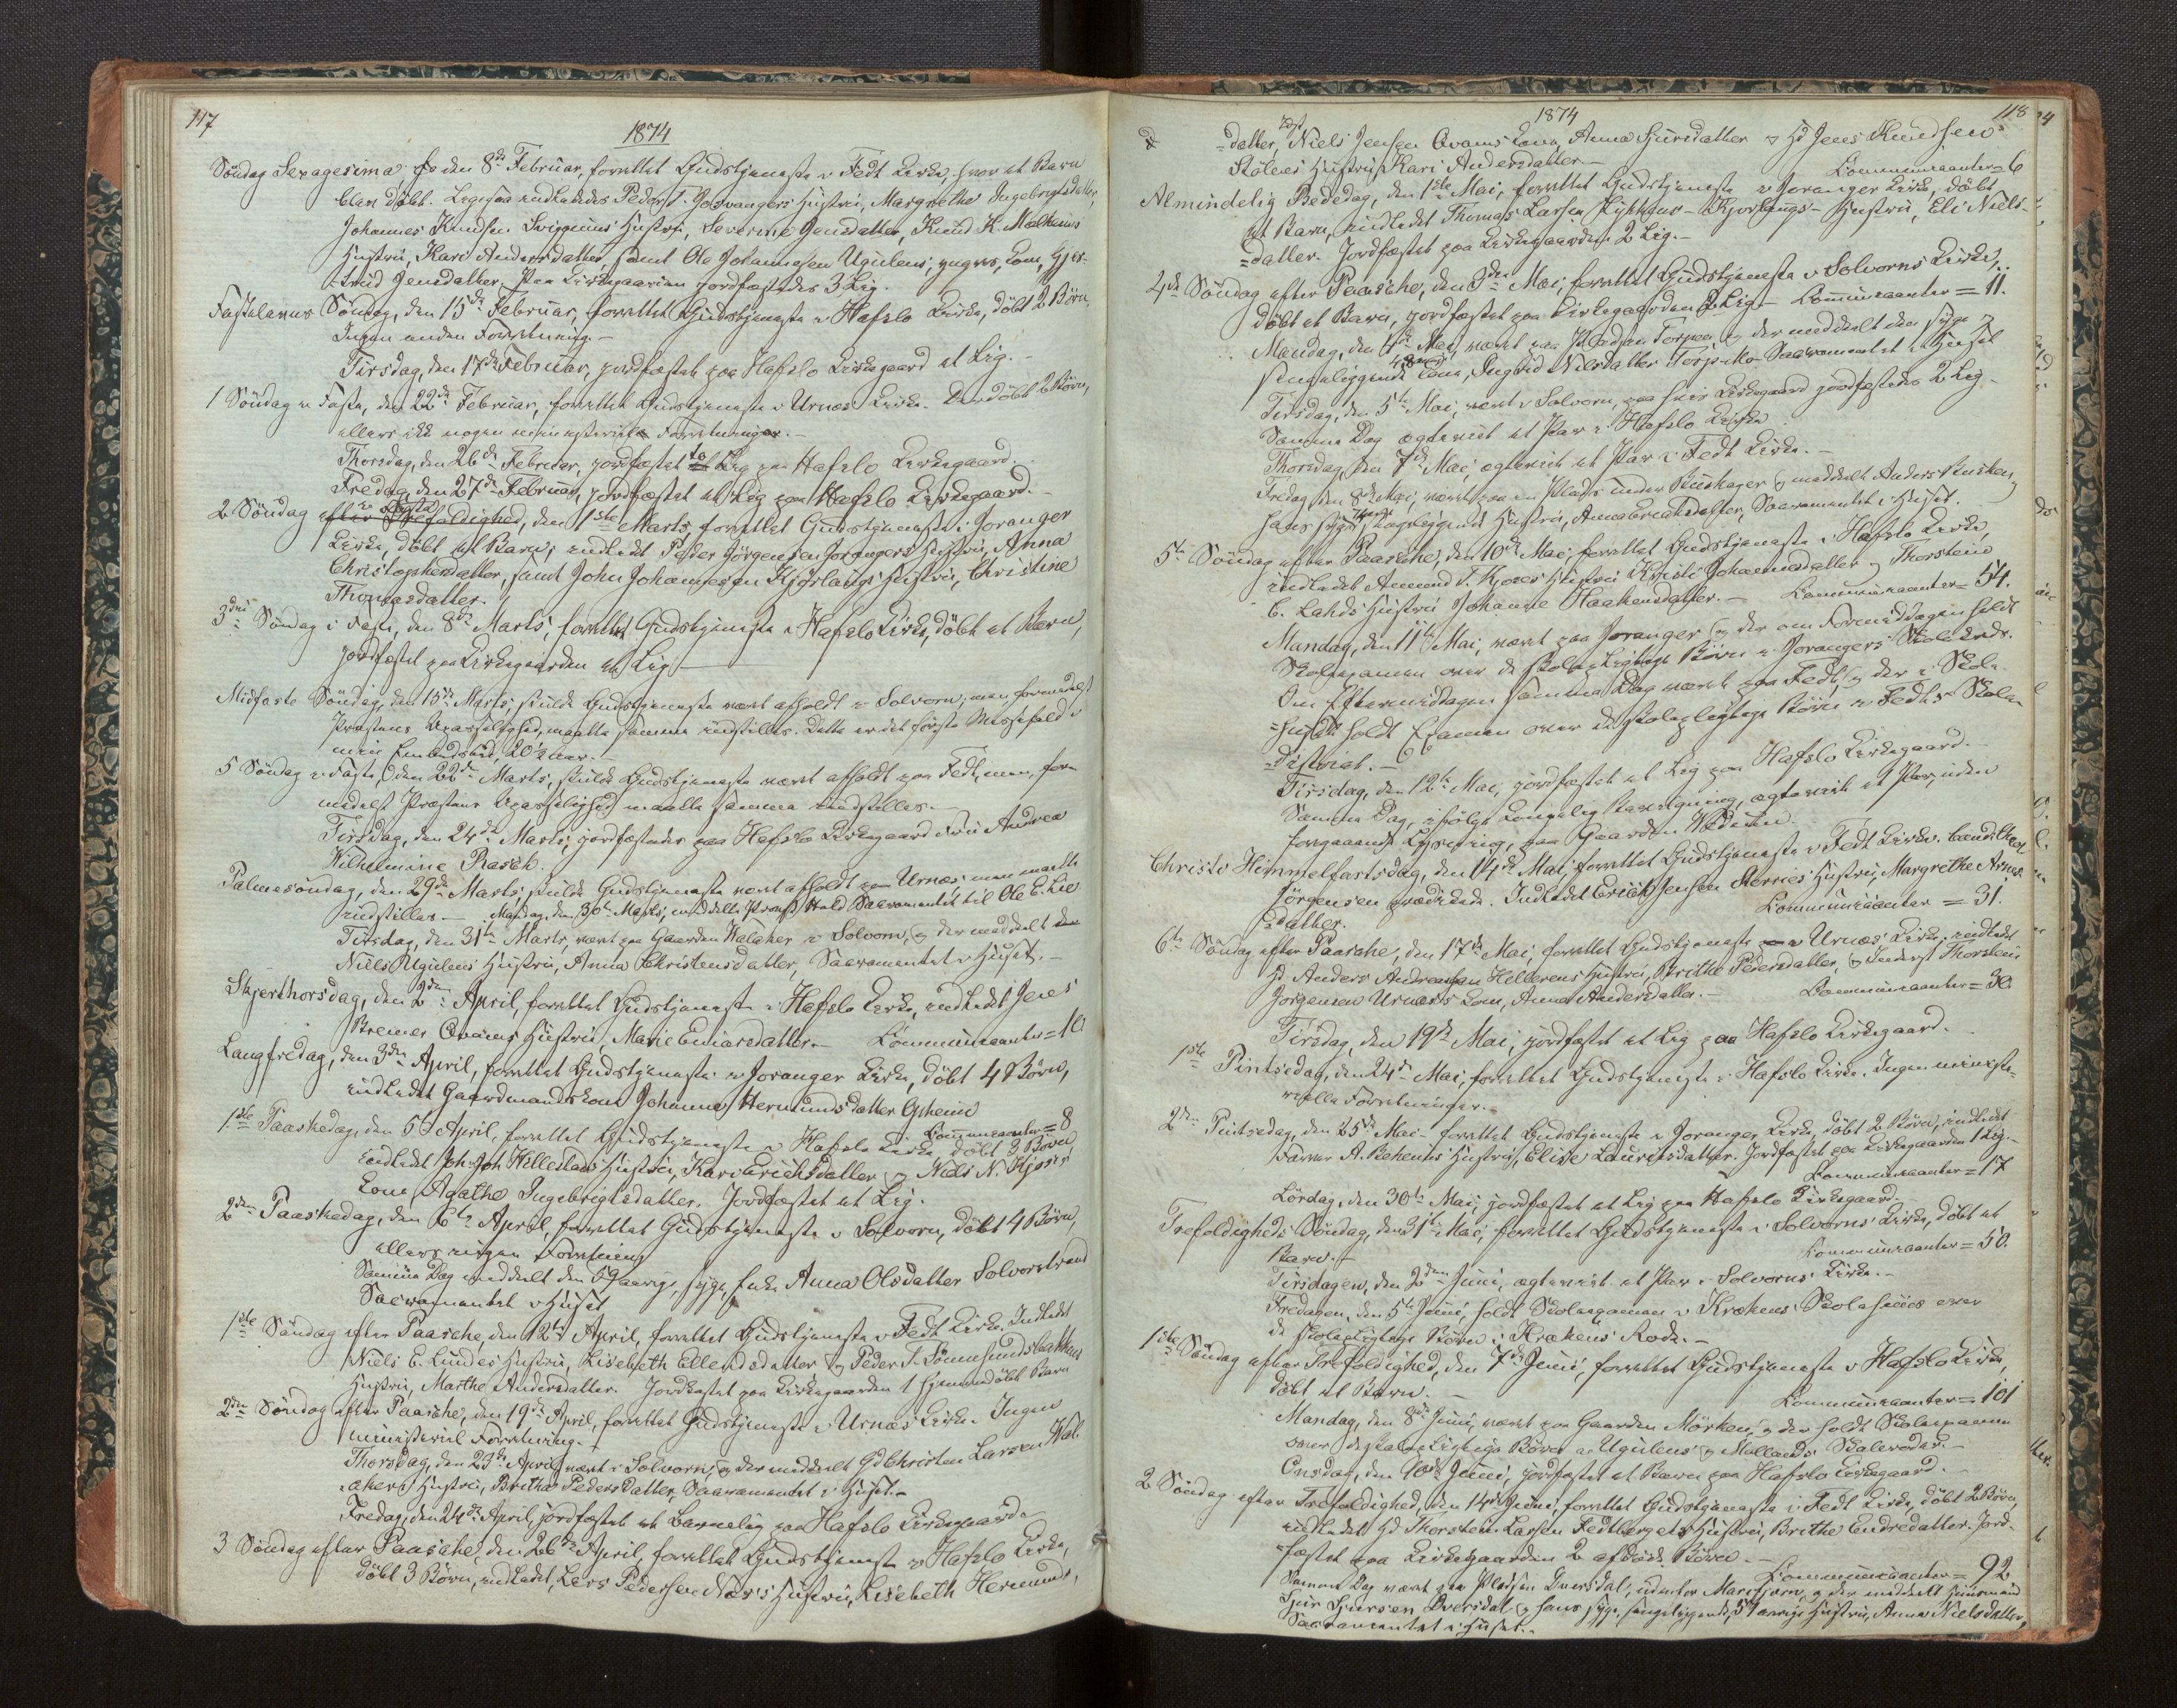 117
1874
Søndag Sexagesima den 8de Februar, forrettet Gudstjeneste i Fedt Kirke, hvor et Barn
blev døbt. Ligesaa indlededes Peder T. Joranger's Hustru, Margrethe Ingebrigtsdatter,
Johannes Knudsen Hustru, Severine Jensdatter, Knud K. Molheims
Hustru, Kari Andersdatter samt Ole Johannesen Ugulens, yngres, Kone, Gjer-
trud Jensdatter. Paa Kirkegaarden jordfæstedes 3 Lig.
Fastelavns Søndag, den 15de Februar, forrettet Gudstjeneste i Hafslo Kirke, døbt 2 Børn,
Ingen anden Forretning.-
Tirsdag, den 17de Februar, jordfæstet paa Hafslo Kirkegaard et Lig.-
1 Søndag i Faste, den 22de Februar, forrettet Gudstjeneste i Urnæs Kirke. Der døbt 2 Børn,
ellers ikke nogen ministeriel Forretninger.-
Thorsdag, den 26de Februar, jordfæstet to Lig paa Hafslo Kirkegaard.
Fredag, den 27de Februar, jordfæstet et Lig paa Hafslo Kirkegaard.-
2 Søndag i Faste, den 1ste Marts forrettet Gudstjeneste i Joranger
Kirke, døbt et Barn, indledt Peder Jörgensen Jorangers Hustru, Anna
Christophersdatter, samt John Johannesen Kjørlaugs Hustru, Christine
Thomasdatter.
3die Søndag i Faste, den 8de Marts, forrettet Gudstjeneste i Hafslo Kirke, døbt et Barn,
jordfæstet paa Kirkegaarden et Lig.
Midfaste Søndag, den 15de Marts, skulde Gudstjeneste været afholdt i Solvorn, men, formedelst
Præstens Upasselighed, maatte samme indstilles. Dette er det første Messefald i
min Embedstid, 20½ aar.-
5 Søndag i Faste, den 22de Marts, skulde Gudstjeneste været afholdt paa Fedt, men, for-
medelst Præstens Upasselighed maatte samme indstilles.-
Tirsdag, den 24de Marts, jordfæstedes paa Hafslo Kirkegaard Fru Andrea
Wilhelmine Rasch.
Palmesøndag, den 29de Marts, skulde Gudstjeneste været afholdt paa Urnæs men maatte
indstilles.- Mandag, den 30te Marts, meddelte Provst Hald Sacramentet til Ole E. Lie
Tirsdag, den 31te Marts, været paa Gaarden Walaker i Solvorn, og der meddelt
Niels Ugulens Hustru, Anna Christensdatter, Sacramentet i Huset.-
Skjerthorsdag, den 2den April, forrettet Gudstjeneste i Hafslo Kirke, indledt Jens
Bremer Qvams Hustru, Marie Eniarsdatter.- Kommunicanter = 10
Langfredag, den 3die April, forrettet Gudstjeneste i Joranger Kirke, døbt 4 Børn,
indledet Gaardmandskone Johanna Hermundsdatter Opheim
Kommunicanter = 8
1ste Paaskedag, den 5te April, forrettet Gudstjeneste i Hafslo Kirke, døbt 3 Børn
indledet Joh. Joh. Hillestads Hustru, Kari Erichsdatter og Niels N. Kjos's
Kone, Agathe Ingebrigtsdatter. Jordfæstet et Lig.
2den Paaskedag, den 6te April, forrettet Gudstjeneste i Solvorn, døbt 4 Børn,
ellers ingen Forretning
Samme Dag meddelt den 59 aarige, syge, Enke Anna Olsdatter Solvorstrand
Sacramentet i Huset
1ste Søndag efter Paasche, den 12te April, forrettet Gudstjeneste i Fedt Kirke. Indledet
Niels E. Lindes Hustru, Lisebeth Ellendsdatter og Peder T. Sønnesundsbakkens
Hustru, Marthe Andersdatter. Jordkastet paa Kirkegaarden 1 hjemmedøbt Barn
2den Søndag efter Paasche, den 19de April, forrettet Gudstjeneste i Urnæs Kirke. Ingen
ministeriel Forretning.-
Thorsdag, den 23de April været i Solvorn, og der meddelt Gd. Christen Larsen Wal-
akers Hustru, Brithe Pedersdatter, Sacramentet i Huset.-
Fredag, den 24de April, jordfæstet et Barnelig paa Hafslo Kirkegaard.
3 Søndag efter Paasche, den 26de April forrettet Gudstjeneste i Hafslo Kirke,
døbt 3 Børn, indledet, Lars Pedersen Næs's Hustru, Lisebeth Hermunds,
118
1874
-datter, Niels Jensen Qvams Kone, Anna Sjursdatter og Gd Jens Knudsen
Hustru Kari Andersdatter.- Kommunicanter = 6
Almindelig Bededag, den 1ste Mai, forrettet Gudstjeneste i Joranger Kirke, døbt
et Barn, indledet Thomas Larsen Kjørlaugs- Hustru, Eli Niels-
=datter. Jordfæstet paa Kirkegaarden 2 Lig.-
4de Søndag efter Paasche, den 3die Mai, forrettet Gudstjeneste i Solvorns Kirke,
døbt et Barn, jordfæstet paa Kirkegaarden 2 Lig.- Kommunicanter = 11.
Mandag, den 4de Mai, været paa Pladsen Torpmo, og der meddelt den syge og
sengeliggende 48 Kone, Ingrid Nilsdatter Torpmo Sacramentet i Huset
Tirsdag, den 5te Mai, været i Solvorn, paa hvis Kirkegaard jordfæstedes 2 Lig.-
Samme Dag ægteviet et Par i Hafslo Kirke
Thorsdag, den 7de Mai, ægteviet et Par i Fedt Kirke.-
Fredag, den 8de Mai, været paa en Plads under Buskager og meddelt Anders Buskager og
hans syge, sengeliggende Hustru, Anna Erichsdatter, Sacramentet i Huset.
5te Søndag efter Paasche, den 10de Mai, forrettet Gudstjeneste i Hafslo Kirke,
indledet Amund T. Kjoses Hustru Kristi Johannesdatter og Thorstein
C. Lahds Hustru Johanne Haakensdatter.- Kommunicanter = 54.
Mandag, den 11te Mai, været paa Joranger og der om Formiddagen holdt
Skoleexamen over de skolepligtige Børn i Jorangers Skolekreds.
Om Eftermiddagen samme Dag været paa Fedt, og der i Skole-
=huset holdt Examen over de skolepligtige Børn i Fedts Skole-
=district.-
Tirsdag, den 12te Mai, jordfæstet et Lig paa Hafslo Kirkegaard.-
Samme Dag, ifølge kongelig Bevilgning, ægteviet et Par, uden
foregaaende Lysning, paa Gaarden
Christi Himmelfartsdag, den 14de Mai, forrettet Gudstjeneste i Fedt Kirke. Cand. theol
Jörgensen prædikede. Indledet Erich Jensen Hustru, Margrethe Arnes-
=datter. Kommunicanter = 31.
6te Søndag efter Paasche, den 17de Mai, forrettet Gudstjeneste i Urnæs Kirke, indledet
Gd Anders Andreasen Hillerens Hustru, Brithe Pedersdatter, og Inderst Thorstein
Jørgensen Urnæs's Kone, Anna Andersdatter.- Kommunicanter = 30.
Tirsdag, den 19de Mai, jordfæstet et Lig paa Hafslo Kirkegaard.
1ste Pintsedag, den 24de Mai, forrettet Gudstjeneste i Hafslo Kirke. Ingen ministe-
rielle Forretninger.-
2den Pintsedag, den 25de Mai- forrettet Gudstjeneste i Joranger Kirke, døbt 2 Børn, indledet
A. Bahems Hustru, Elise Lauritsdatter. Jordfæstet paa Kirkegaarden 1 Lig.-
Kommunicanter = 17
Lördag, den 30te Mai, jordfæstet et Lig paa Hafslo Kirkegaard.-
Trefoldigheds Søndag, den 31te Mai, forrettet Gudstjeneste i Solvorns Kirke, døbt et
Barn.- Kommunicanter = 50.
Tirsdagen, den 2den Juni, ægteviet et Par i Solvorns Kirke.-
Fredagen, den 5te Juni, holdt Skoleexamen i Krækens Skolehuus over
de skolepligtige Børn i Krækens Rode.-
1ste Søndag efter Trefoldighed, den 7de Juni, forrettet Gudstjeneste i Hafslo Kirke,
døbt et Barn.- Kommunicanter = 101
Mandag, den 8de Juni, været paa Gaarden Mörken, og der holdt Skoleexamen
over de skolepligtige Børn i Ugulens og Mollands Skoleroder.-
Onsdag, den 10de Juni, jordfæstet et Barn paa Hafslo Kirkegaard.
2 Søndag efter Trefoldighed, den 14de Juni, forrettet Gudstjeneste i Fedt Kirke, døbt 2 Børn,
indledet Gd Thorstein Larsen Fedtbergets Hustru, Brithe Endredatter. Jord-
=fæstet paa Kirkegaarden 2 afdøde Børn.-
Kommunicanter = 92
Samme Dag været paa Pladsen Dversdal, udenfor Marifjøren, og der meddelt Huusmand
Sjur Sjursen Dversdal og hans syge, sengeliggende, 57 aarige Hustru, Anna Nielsdatter,
Sacramentet i Huset.-